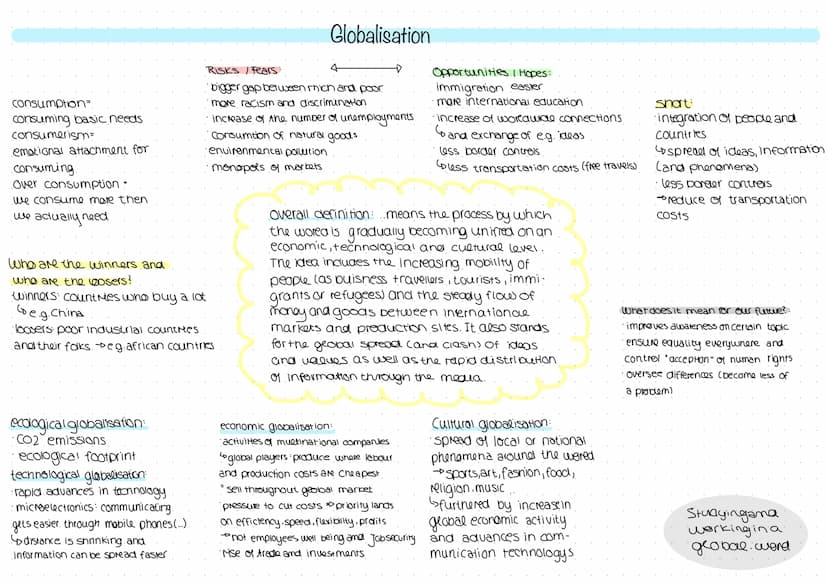 Globalisation
consumption=
consuming basic needs
consumerism=
emotional attachment for
consuming
over consumption =
we consume more then
we actually need
Risks / Fears
· bigger gap between rich and poor
· more racism and discrimination
· increase of the number of unemployments
· consumtion of natural goods
· environmental pollution
· monopols of markets
Opportunities / Hopes:
immigration easier
· more international education
· increase of worldwide connections
↳ and exchange of e.g. ideas
· less border controls
↳ less transportation costs (free travels)
Short:
· integration of people and
countries
↳ spread of ideas, information
(and phenomena)
· less border controls
→ reduce of transportation
costs
Overall definition: ...means the process by which
the world is gradually becoming unified on an
economic, technological and cultural level.
The idea includes the increasing mobility of
people (as buisness travellers, tourists, immi-
grants or refugees) and the steady flow of
money and goods between international
markets and production sites. It also stands
for the global spread (and clash) of ideas
and values as well as the rapid distribution
of information through the media.
Who are the winners and
who are the loosers?
winners: countries who buy a lot
↳ e.g. China
loosers: poor industrial countries
and their folks → e.g. african countries
What does it mean for our future?
· improves awareness on certain topic
· ensure equality everywhere and
control "acception" of human rights
· oversee differences (become less of
a problem)
ecological globalisation:
· CO2 emissions
· ecological footprint
technological globalisation:
· rapid advances in technology
· microelectronics: communicating
gets easier through mobile phones (...)
↳ distance is shrinking and
information can be spread faster
economic globalisation:
· activities of multinational companies
↳ global players: produce where labour
and production costs are cheapest
* sell throughout global market
· pressure to cut costs → priority lands
on efficiency, speed, flexibility, profits
→ not employees well being and Jobsecurity
· rise of trade and investments
Cultural globalisation:
· spread of local or national
phenomena around the world
→ sports, art, fashion, food,
religion, music...
↳ furthered by increase in
global economic activity
and advances in com-
munication technologys
Studying and
working in a
global word